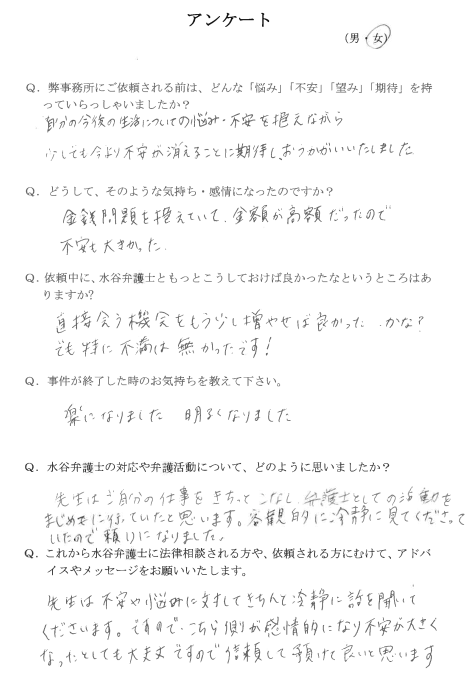 アンケート
(男・女)
Q．弊事務所にご依頼される前は、どんな「悩み」「不安」「望み」「期待」を持
っていらっしゃいましたか？
自分の今後の生活についての悩み・不安を抱えながら
少しでも今より不安が消えることに期待し、おうかがいいたしました
Q．どうして、そのような気持ち・感情になったのですか？
金銭問題を抱えていて、金額が高額だったので
不安も大きかった．
Q．依頼中に、水谷弁護士ともっとこうしておけば良かったなというところはあ
りますか?
直接会う機会をもう少し増やせば良かった．かな？
でも特に不満は無かったです！
Q．事件が終了した時のお気持ちを教えて下さい。
楽になりました　明るくなりました
Q．水谷弁護士の対応や弁護活動について、どのように思いましたか？
先生はご自分の仕事をきちっとこなし、弁護士としての活動を
まじめに行っていたと思います。客観的に冷静に見てくださって
いたので頼りになりました。
Q．これから水谷弁護士に法律相談される方や、依頼される方にむけて、アドバ
イスやメッセージをお願いいたします。
先生は不安や悩みに対してきちんと冷静に話を聞いて
くださいます。ですので、こちら側が感情的になり不安が大きく
なったとしても大丈夫ですので信頼して預けて良いと思います